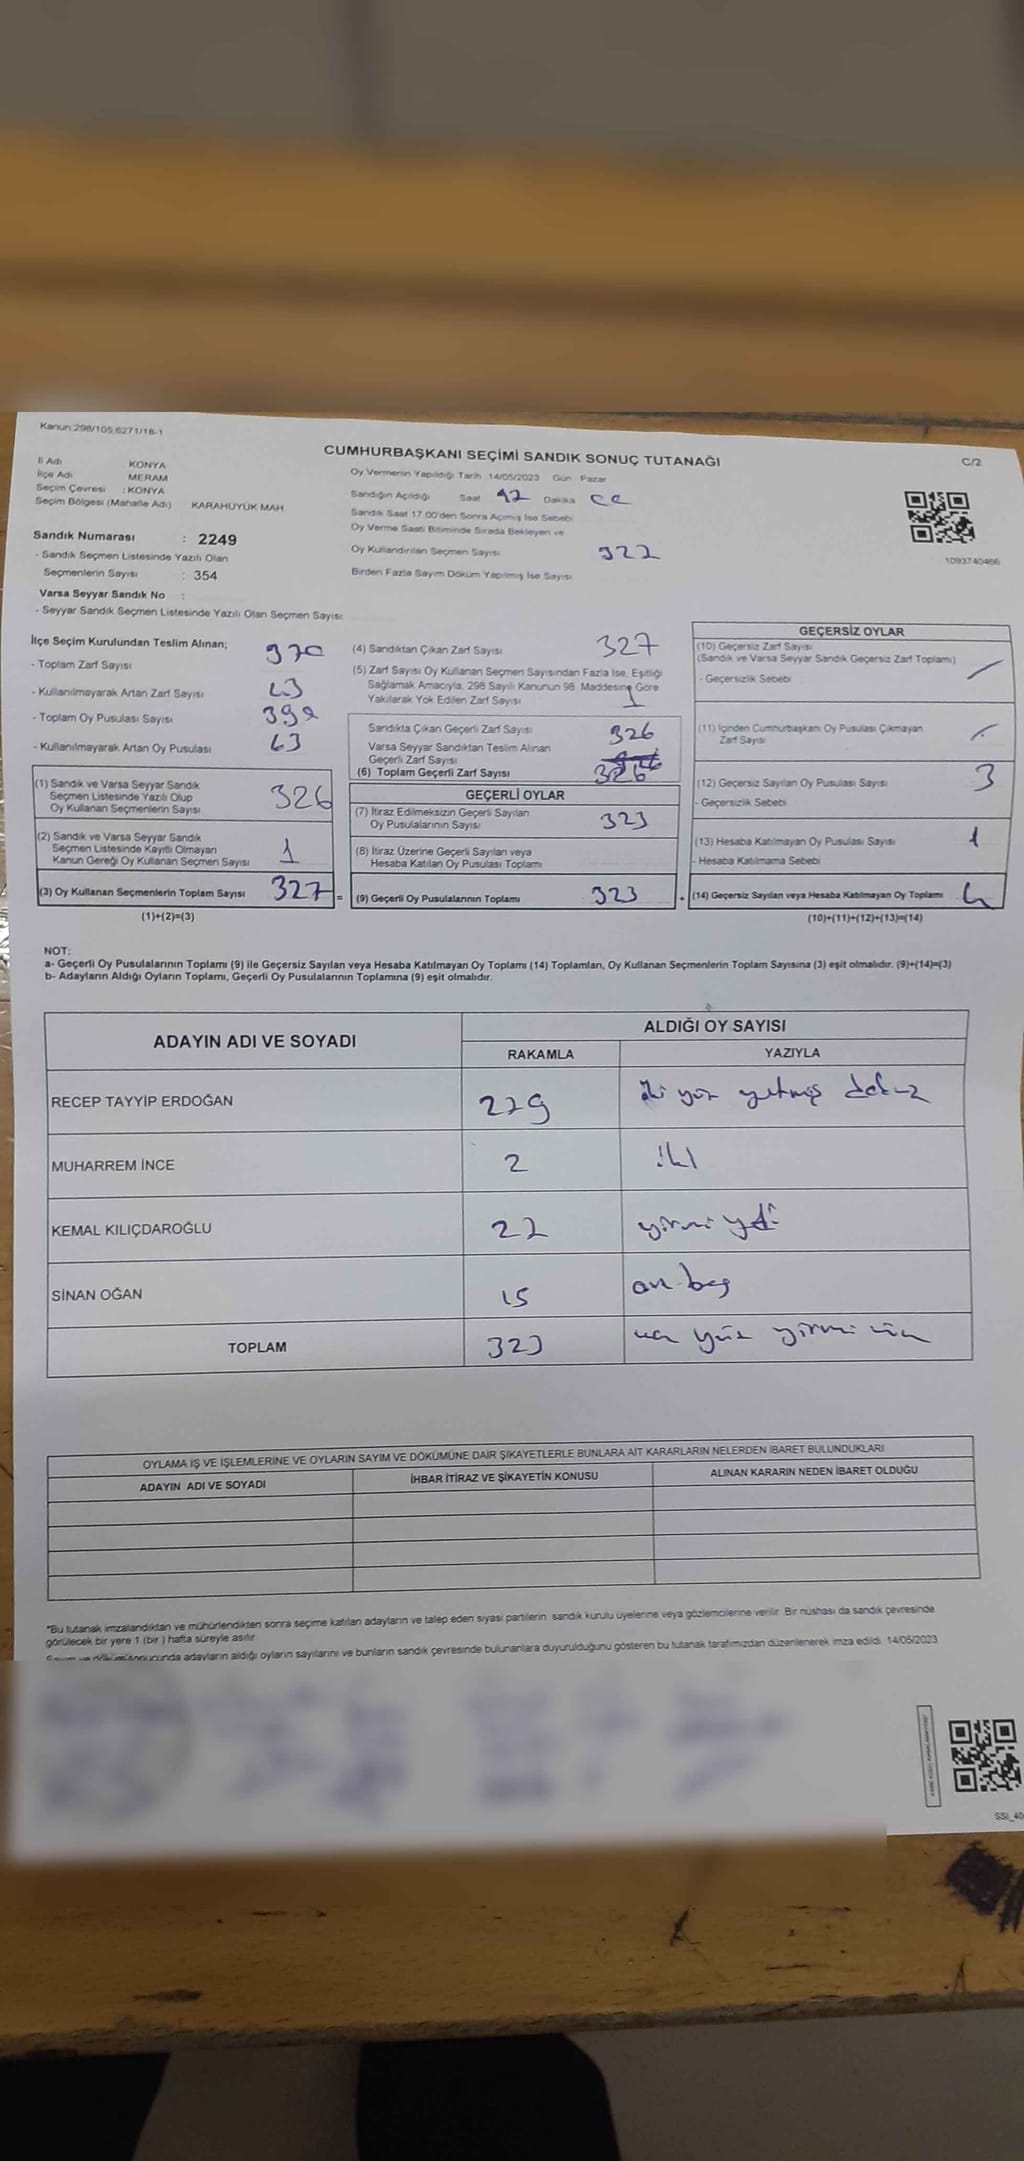 Kanun:298/105,6271/18-1
CUMHURBAŞKANI SEÇİMİ SANDIK SONUÇ TUTANAĞI
C/2
İl Adı KONYA
İlçe Adı MERAM
Seçim Çevresi : KONYA
Seçim Bölgesi (Mahalle Adı) KARAHÜYÜK MAH
Sandık Numarası : 2249
- Sandık Seçmen Listesinde Yazılı Olan
Seçmenlerin Sayısı : 354
Varsa Seyyar Sandık No :
- Seyyar Sandık Seçmen Listesinde Yazılı Olan Seçmen Sayısı:
Oy Vermenin Yapıldığı Tarih 14/05/2023 Gün Pazar
Sandığın Açıldığı Saat 17 Dakika
Sandık Saat 17:00'den Sonra Açılmış İse Sebebi
Oy Verme Saati Bitiminde Sırada Bekleyen ve
Oy Kullandırılan Seçmen Sayısı 327
Birden Fazla Sayım Döküm Yapılmış İse Sayısı
1093740466
İlçe Seçim Kurulundan Teslim Alınan;
- Toplam Zarf Sayısı 370
- Kullanılmayarak Artan Zarf Sayısı 43
- Toplam Oy Pusulası Sayısı 390
- Kullanılmayarak Artan Oy Pusulası 63
(1) Sandık ve Varsa Seyyar Sandık
Seçmen Listesinde Yazılı Olup
Oy Kullanan Seçmenlerin Sayısı 326
(2) Sandık ve Varsa Seyyar Sandık
Seçmen Listesinde Kayıtlı Olmayan
Kanun Gereği Oy Kullanan Seçmen Sayısı 1
(3) Oy Kullanan Seçmenlerin Toplam Sayısı 327 =
(1)+(2)=(3)
(4) Sandıktan Çıkan Zarf Sayısı 327
(5) Zarf Sayısı Oy Kullanan Seçmen Sayısından Fazla İse, Eşitliği
Sağlamak Amacıyla, 298 Sayılı Kanunun 98. Maddesine Göre
Yakılarak Yok Edilen Zarf Sayısı 1
Sandıkta Çıkan Geçerli Zarf Sayısı 326
Varsa Seyyar Sandıktan Teslim Alınan
Geçerli Zarf Sayısı
(6) Toplam Geçerli Zarf Sayısı 326
GEÇERLİ OYLAR
(7) İtiraz Edilmeksizin Geçerli Sayılan
Oy Pusulalarının Sayısı 323
(8) İtiraz Üzerine Geçerli Sayılan veya
Hesaba Katılan Oy Pusulası Toplamı
(9) Geçerli Oy Pusulalarının Toplamı 323 +
GEÇERSİZ OYLAR
(10) Geçersiz Zarf Sayısı
(Sandık ve Varsa Seyyar Sandık Geçersiz Zarf Toplamı)
- Geçersizlik Sebebi
(11) İçinden Cumhurbaşkanı Oy Pusulası Çıkmayan
Zarf Sayısı
(12) Geçersiz Sayılan Oy Pusulası Sayısı 3
- Geçersizlik Sebebi
(13) Hesaba Katılmayan Oy Pusulası Sayısı 1
- Hesaba Katılmama Sebebi
(14) Geçersiz Sayılan veya Hesaba Katılmayan Oy Toplamı 4
(10)+(11)+(12)+(13)=(14)
NOT:
a- Geçerli Oy Pusulalarının Toplamı (9) ile Geçersiz Sayılan veya Hesaba Katılmayan Oy Toplamı (14) Toplamları, Oy Kullanan Seçmenlerin Toplam Sayısına (3) eşit olmalıdır. (9)+(14)=(3)
b- Adayların Aldığı Oyların Toplamı, Geçerli Oy Pusulalarının Toplamına (9) eşit olmalıdır.
ADAYIN ADI VE SOYADI ALDIĞI OY SAYISI
RAKAMLA YAZIYLA
RECEP TAYYİP ERDOĞAN 279 iki yüz yetmiş dokuz
MUHARREM İNCE 2 iki
KEMAL KILIÇDAROĞLU 27 yirmi yedi
SİNAN OĞAN 15 on beş
TOPLAM 323 üç yüz yirmi üç
OYLAMA İŞ VE İŞLEMLERİNE VE OYLARIN SAYIM VE DÖKÜMÜNE DAİR ŞİKAYETLERLE BUNLARA AİT KARARLARIN NELERDEN İBARET BULUNDUKLARI
ADAYIN ADI VE SOYADI İHBAR İTİRAZ VE ŞİKAYETİN KONUSU ALINAN KARARIN NEDEN İBARET OLDUĞU
*Bu tutanak imzalandıktan ve mühürlendikten sonra seçime katılan adayların ve talep eden siyasi partilerin sandık kurulu üyelerine veya gözlemcilerine verilir. Bir nüshası da sandık çevresinde
görülecek bir yere 1 (bir ) hafta süreyle asılır.
Sayım ve döküm sonucunda adayların aldığı oyların sayılarını ve bunların sandık çevresinde bulunanlara duyurulduğunu gösteren bu tutanak tarafımızdan düzenlenerek imza edildi. 14/05/2023